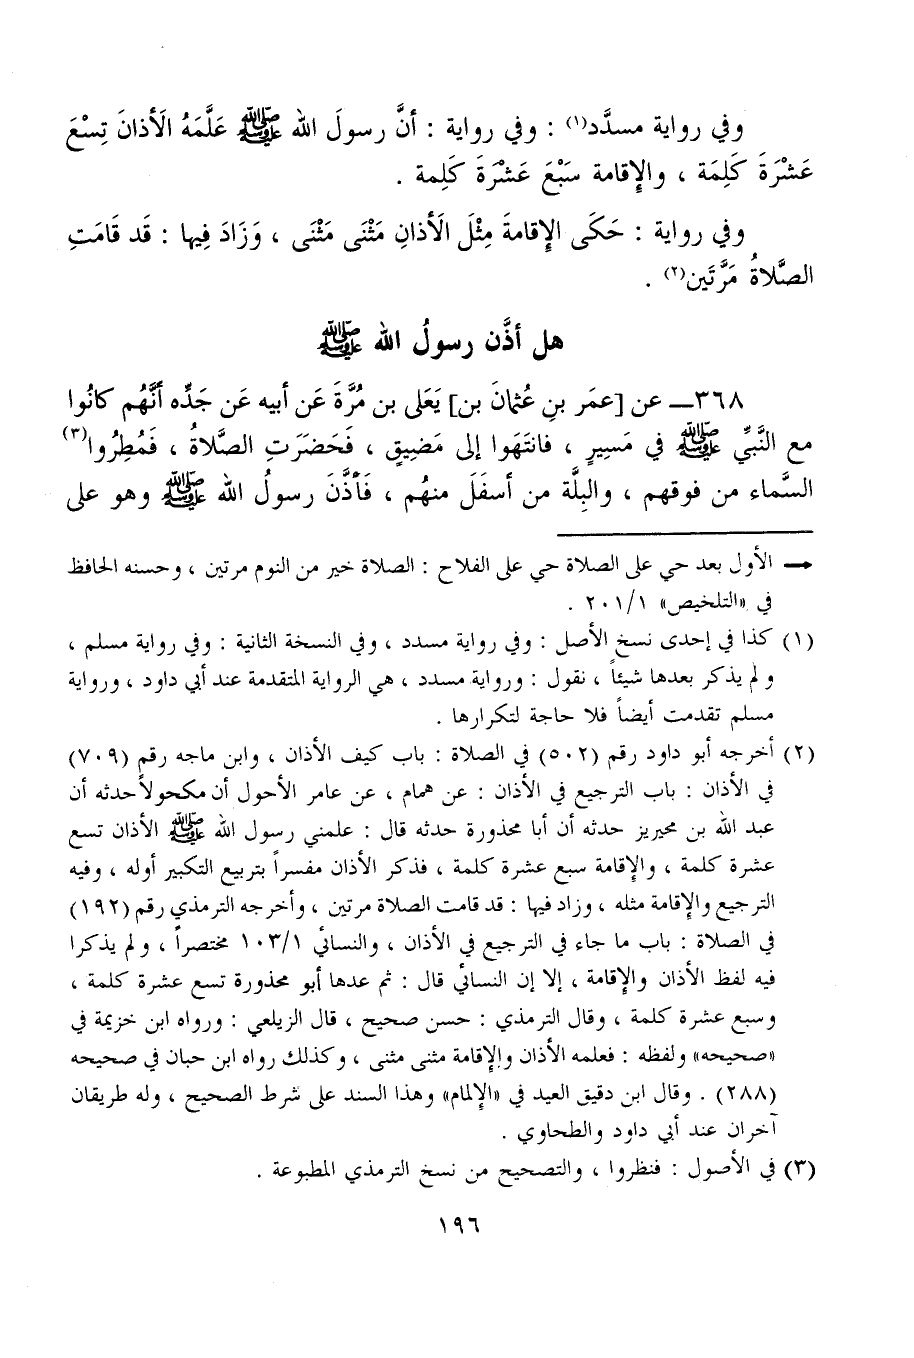 وفي رواية مسدَّد(١) : وفي رواية : أنَّ رسولَ الله ﷺ عَلَّمَهُ الَأذانَ تِسْعَ
عَشْرَةَ كَلِمَة ، والإِقامة سَبْعَ عَشْرَةَ كَلِمة .
وفي رواية : حَكَى الإِقامةَ مِثْلَ الَأذانِ مَثْنَى مَثْنَى ، وَزَادَ فِيها : قَد قَامَتِ
الصَّلاةُ مَرَّتَين(٢) .
هل أذَّن رسولُ الله ﷺ
٣٦٨ـ عن [عمَر بنِ عُثمانَ بن] يَعَلى بن مُرَّةَ عَن أبيه عَن جَدِّه أنَّهُم كانُوا
مع النَّبيِّ ﷺ في مَسِيرٍ ، فانتَهَوا إلى مَضِيقٍ ، فَحَضَرَتِ الصَّلاةُ ، فَمُطِرُوا(٣)
السَّماء من فوقهم ، والبِلَّة من أسفَلَ منهُم ، فَأذَّنَ رسولُ الله ﷺ وهو على
← الأول بعد حي على الصلاة حي على الفلاح : الصلاة خير من النوم مرتين ، وحسنه الحافظ
في «التلخيص» ٢٠١/١ .
(١) كذا في إحدى نسخ الأصل : وفي رواية مسدد ، وفي النسخة الثانية : وفي رواية مسلم ،
و لم يذكر بعدها شيئاً ، نقول : ورواية مسدد ، هي الرواية المتقدمة عند أبي داود ، ورواية
مسلم تقدمت أيضاً فلا حاجة لتكرارها .
(٢) أخرجه أبو داود رقم (٥٠٢) في الصلاة : باب كيف الأذان ، وابن ماجه رقم (٧٠٩)
في الأذان : باب الترجيع في الأذان : عن همام ، عن عامر الأحول أن مكحولاً حدثه أن
عبد الله بن محيريز حدثه أن أبا محذورة حدثه قال : علمني رسول الله ﷺ الأذان تسع
عشرة كلمة ، والإقامة سبع عشرة كلمة ، فذكر الأذان مفسراً بتربيع التكبير أوله ، وفيه
الترجيع والإقامة مثله ، وزاد فيها : قد قامت الصلاة مرتين ، وأخرجه الترمذي رقم (١٩٢)
في الصلاة : باب ما جاء في الترجيع في الأذان ، والنسائي ١٠٣/١ مختصراً ، و لم يذكرا
فيه لفظ الأذان والإقامة ، إلا إن النسائي قال : ثم عدها أبو محذورة تسع عشرة كلمة ،
وسبع عشرة كلمة ، وقال الترمذي : حسن صحيح ، قال الزيلعي : ورواه ابن خزيمة في
«صحيحه» ولفظه : فعلمه الأذان والإقامة مثنى مثنى ، وكذلك رواه ابن حبان في صحيحه
(٢٨٨) . وقال ابن دقيق العيد في «الإلمام» وهذا السند على شرط الصحيح ، وله طريقان
آخران عند أبي داود والطحاوي .
(٣) في الأصول : فنظروا ، والتصحيح من نسخ الترمذي المطبوعة .
١٩٦